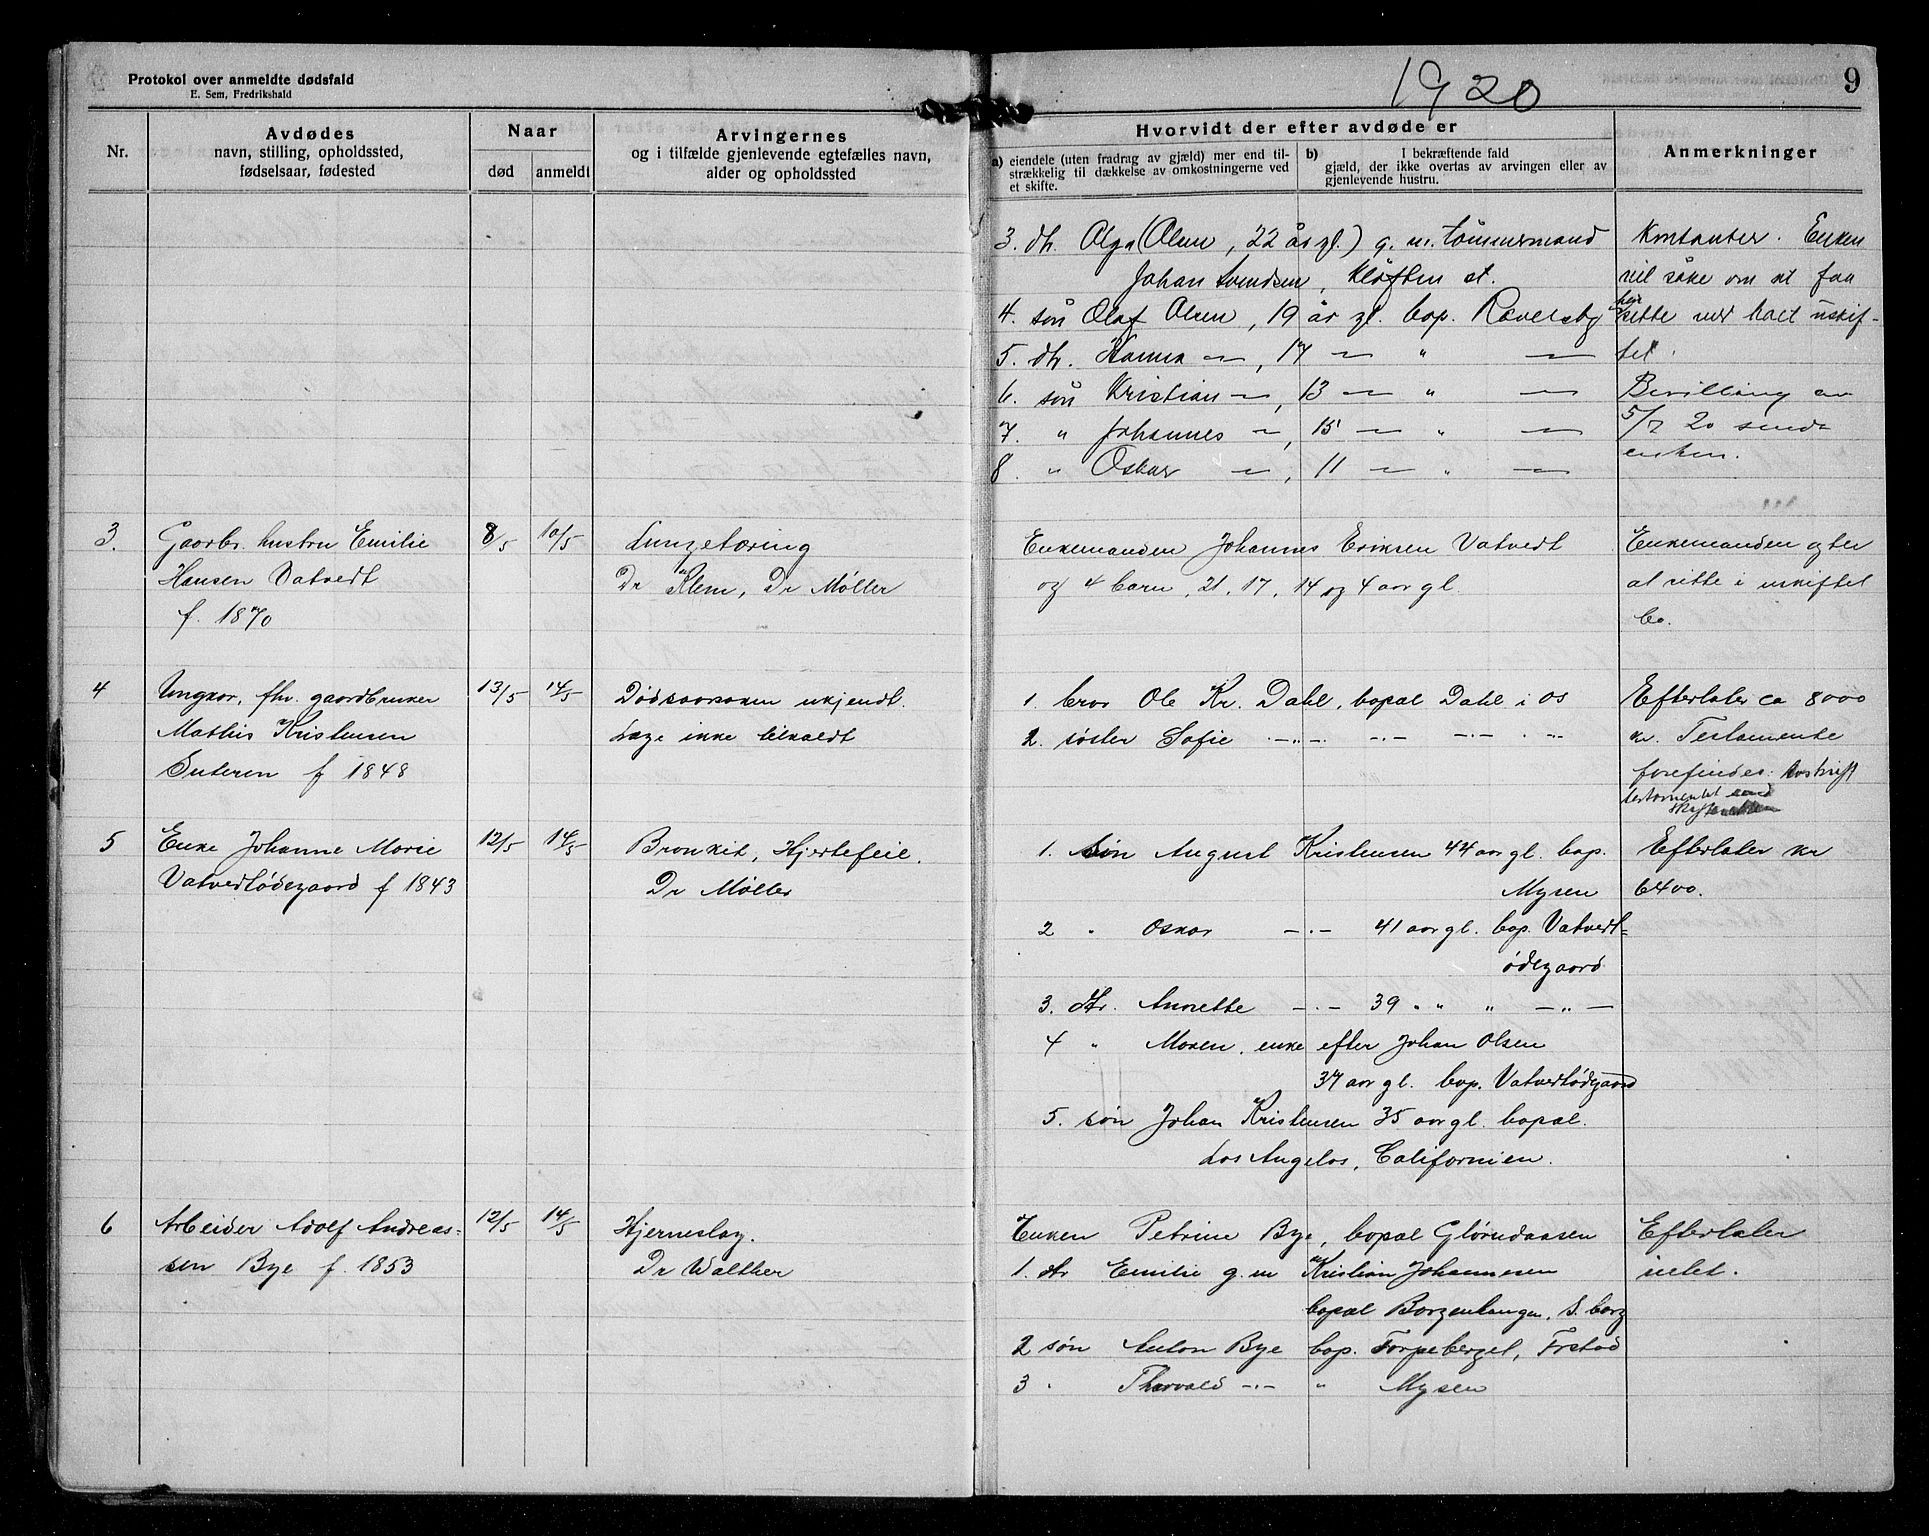 Protokol over anmeldte dødsfald
E. Sem, Fredrikshald
1920
9
Nr.
Avdødes
navn, stilling, opholdssted,
fødselsaar, fødested
Naar
død
anmeldt
Arvingernes
og i tilfælde gjenlevende egtefælles navn,
alder og opholdssted
Hvorvidt der efter avdøde er
a) eiendele (uten fradrag av gjæld) mer end til-
strækkelig til dækkelse av omkostningerne ved
et skifte.
b) I bekræftende fald
gjæld, der ikke overtas av arvingen eller av
gjenlevende hustru.
Anmerkninger
3. dtr. Olga (Olsen, 22 år gl.) g. m. tømmermand
Johan Svendsen, Kløften st.
4. søn Olaf Olsen, 19 år gl. bop. Rævelsby
5. dtr. Hanna — , 17 — " —
6. søn Kristian — , 13 — " —
7. " Johannes — , 15 — " —
8. " Oskar — , 11 — " —
Kontanter. Enken
vil søke om at faa
hen
sitte med boet uskif-
tet.
Bevilling av
5/7 20 sendt
enken.
3.
Gaardbr. hustru Emilie
Hansen Vatvedt
f. 1870
8/5
10/5
Lungetæring
Dr Klem, Dr Møller
Enkemanden Johannes Eriksen Vatvedt
og 4 barn, 21, 17, 14 og 4 aar gl.
Enkemanden agter
at sitte i uskiftet
bo.
4
Ungkar, fhv. gaardbruker
Mathis Kristensen
Enteren f 1848
13/5
14/5
Dødsaarsaken ukjendt.
Læge ikke tilkaldt
1. bror Ole Kr. Dahl, bopæl Dahl i Os
2. søster Sofie -"- -"- -"- " -"-
Efterlater ca 8000
kr. Testamente
forefindes. Avskrift
testamentet send
skifteretten
5
Enke Johanne Marie
Vatvedtødegaard f 1843
12/5
14/5
Bronkit, Hjertefeil.
Dr Møller
1. søn August Kristensen 44 aar gl. bop.
Mysen
2 " Oskar -"- 41 aar gl. bop. Vatvedt=
ødegaard
3. dtr. Annette -"- 39 " " " -"-
4 " Maren, enke efter Johan Olsen
37 aar gl. bop. Vatvedtødegaard
5. søn Johan Kristensen 35 aar gl. bopæl.
Los Angelos, Californien.
Efterlater kr
6400.
6
Arbeider Adolf Andreas-
sen Bye f. 1853
12/5
14/5
Hjerneslag.
Dr Walther
Enken Petrine Bye, bopæl Glørudaasen
1. dtr Emilie g. m Kristian Johannesen
bopæl Borgenhaugen, S. borg
2 søn Anton Bye bop. Torpeberget, Frstad
3 " Thorvald -"- " Mysen
Efterlater
intet.